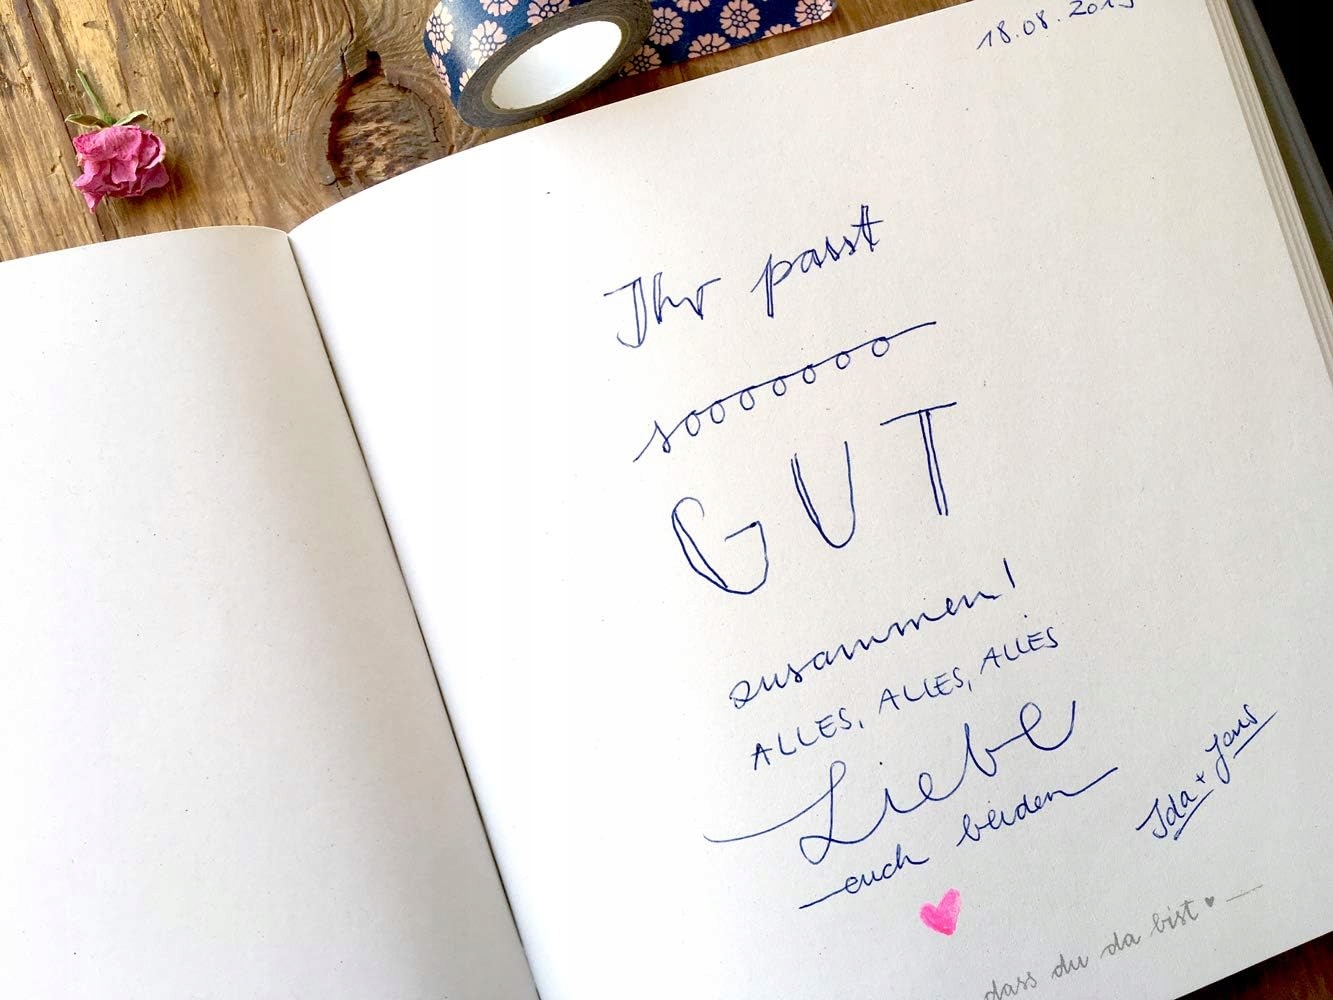 18.08.2015
Ihr passt
sooooooo
GUT
zusammen!
ALLES, ALLES, ALLES
Liebe
euch beiden
Ida + Jans
dass du da bist ♥